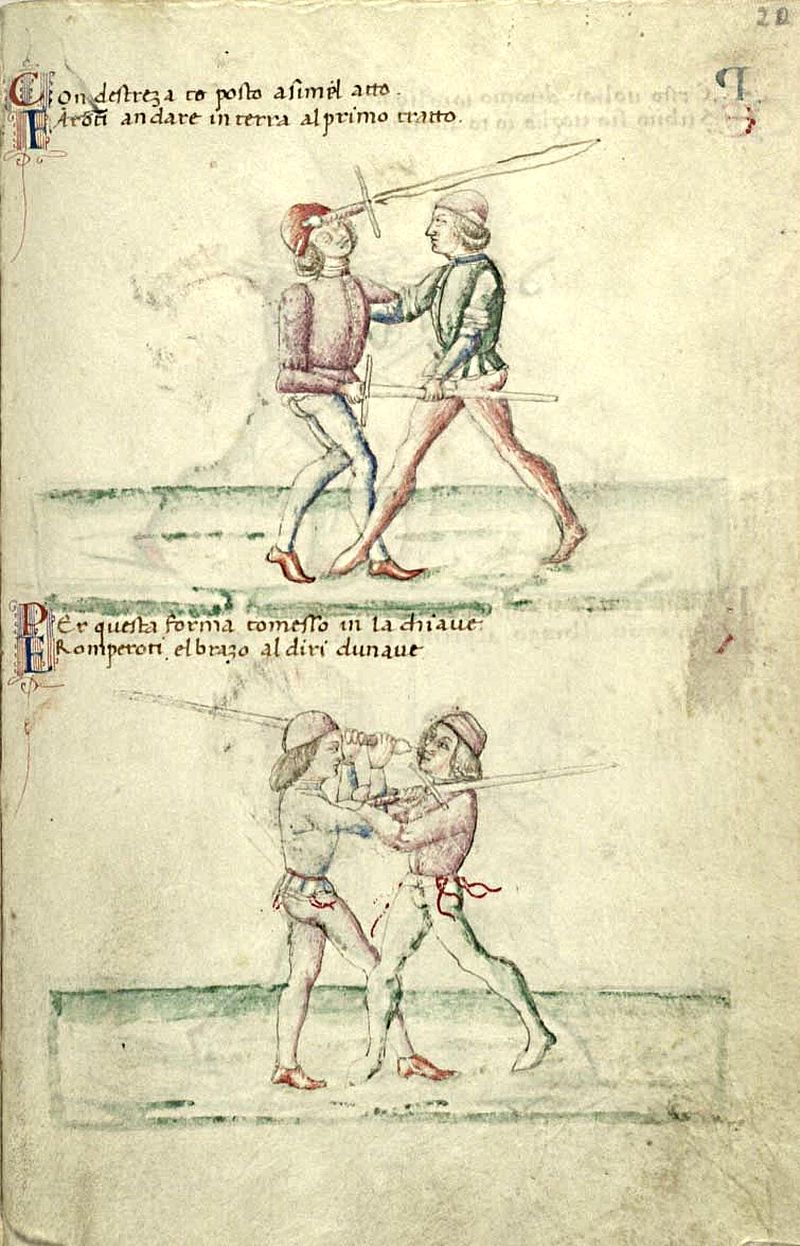 20
Con destreza to posto asimel atto.
E faroti andare in terra al primo tratto.
Per questa forma tomesso in la chiave
E Romperoti el brazo al diri dunave